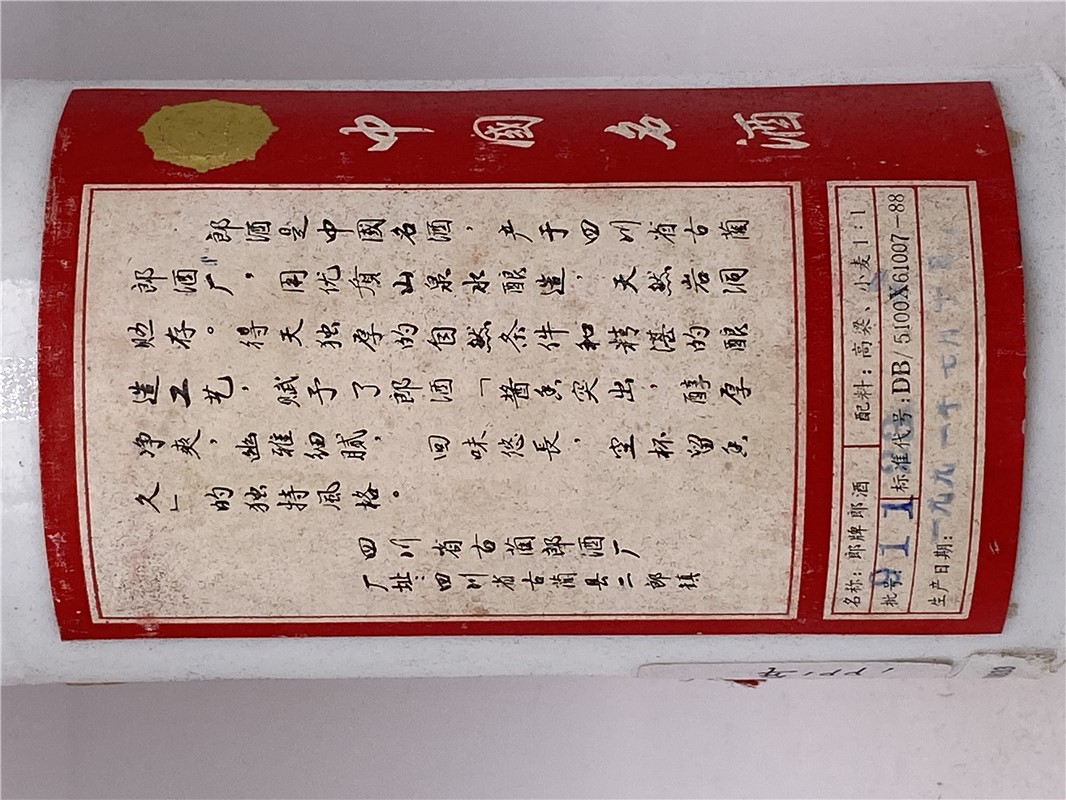 中國名酒
郎酒是中國名酒，产于四川省古蔺
郎酒厂，用优质山泉水酿造，天然岩洞
贮存。得天独厚的自然条件和精湛的酿
造工艺，赋予了郎酒「酱香突出，醇厚
净爽，幽雅细腻，回味悠長，空杯留香
久」的独特風格。
四川省古蔺郎酒厂
厂址：四川省古蔺县二郎镇
名称：郎牌郎酒 配料：高粱、小麦1：1
批号 911 标准代号：DB/5100X61007-88
生产日期：一九九一年七月